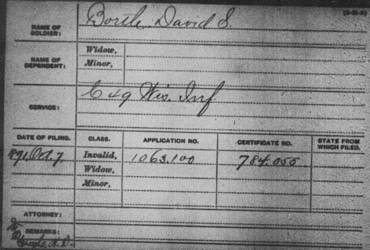 NAME OF SOLDIER: Bortle David S.
NAME OF DEPENDENT: Widow,
Minor,
SERVICE: C 49 Wis. Inf
DATE OF FILING. CLASS. APPLICATION NO. CERTIFICATE NO. STATE FROM WHICH FILED.
Oct. 7 Invalid, 1.063.100 784.055
Widow,
Minor,
ATTORNEY:
REMARKS: